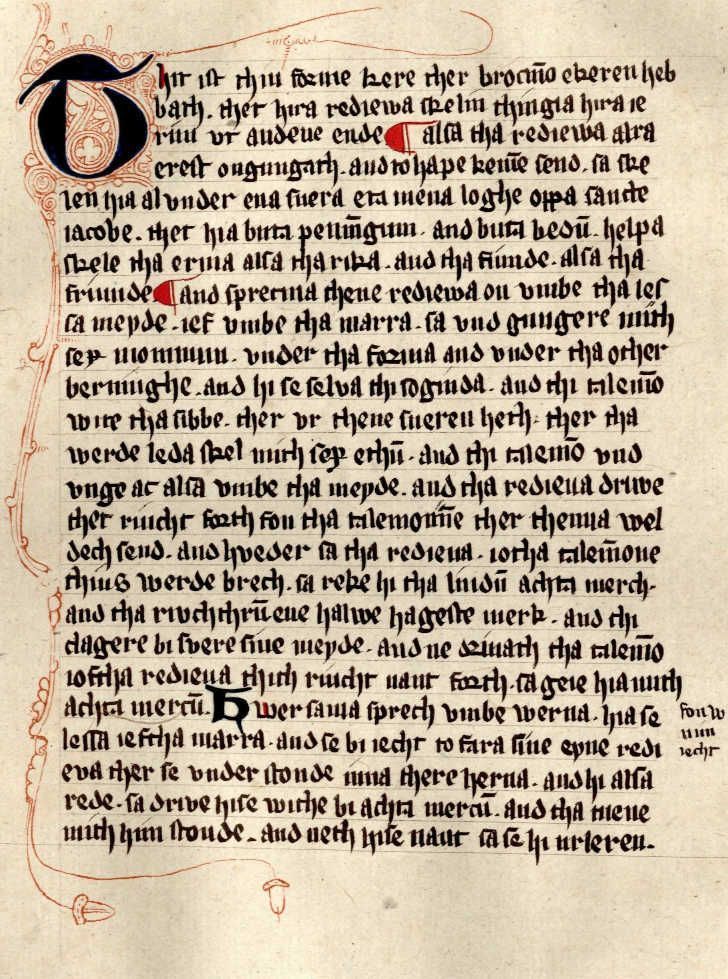 Thit ist thiu forme kere ther brocmō ekeren heb
bath. thet hira rediewa skelin thingia hira ie
riin vt and eue ende ¶ alsa tha rediewa alra
erest ongungath. and to hape kemē send. sa ske
len hia al vnder ena suera eta mena loghe oppa sancte
iacobe. thet hia buta pennīgum. and buta bedū. helpa
skele tha erma alsa tha rika. and tha fiunde. alsa tha
friunde ¶ and sprecma thene rediewa on vmbe tha les
sa meyde. ief vmbe tha marra. sa vnd gungere mith
sex monnum. vnder tha forma and vnder tha other
bernnighe. and hi se selva thi soginda. and thi talemō
wite tha sibbe. ther vr thene sueren heth. ther tha
werde leda skel mith sex ethū. and thi talemō vnd
vnge ac alsa vmbe tha meyde. and tha redieua driwe
thet riucht forth fon tha talemonnē ther thenna wel
dech send. and hveder sa tha redieua. iotha talemōne
thius werde brech. sa reke hi tha liudū achta merch.
and tha riuchthrū ene halwe hageste merk. and thi
clagere bi svere sine meyde. and ne driuath tha talemō
ioftha redieua thith riucht naut forth. sa geie hia mith
achta mercū. Hwersama sprech vmbe werna. hia se
lessa ieftha marra. and se bi iecht to fara sine eyne redi fon w
nm
eva ther se vnder stonde nima there herna. and hi alsa iecht
rede. sa drive hise withe bi achta mercū. and tha mene
mith him stonde. and neth hise naut sa se hi urleren.